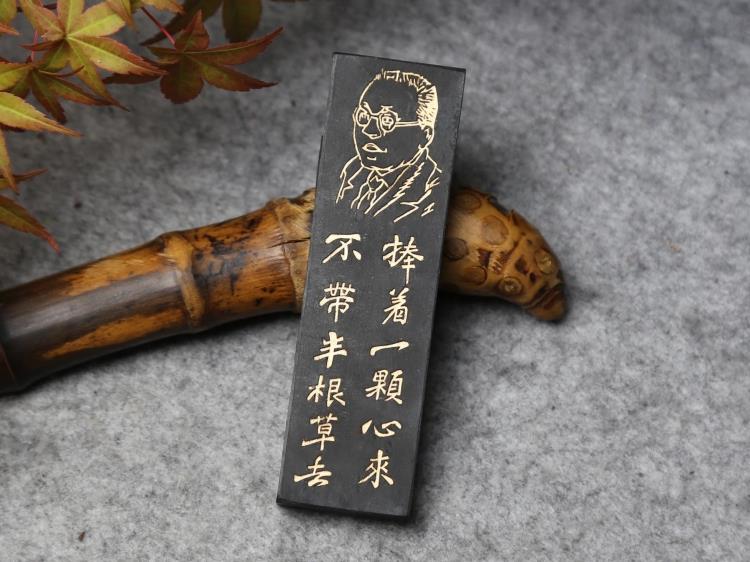 捧着一顆心來
不帶半根草去